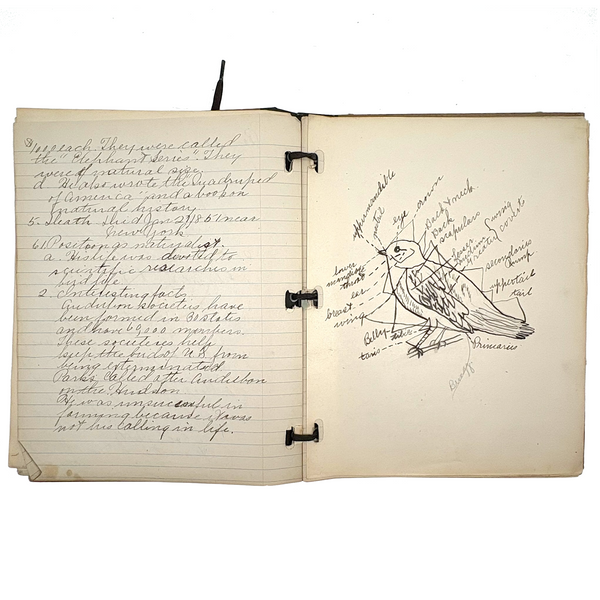 $1000 each. They were called
the "Elephant Series". They
were of natural size.
d. He also wrote the "Quadruped
of America" and a book on
natural history.
5. Death. Died Jan 27, 1851 near
New York
6. Position as naturalist.
a. His life was devoted to
scientific researches in
bird life.
2. Interesting facts
Audubon Societies have
been formed in 30 states
and have 69000 members.
These societies help
keep the bird of U.S. from
being exterminated
Parks called after Audubon
on the Hudson.
He was unsuccessful in
farming because it was
not his calling in life.
upper mandible
nostril
eye
crown
Back of neck
Back
scapulars
lesser
middle
greater
wing
coverts
secondaries
rump
upper tail
tail
lower
mandible
throat
ear
breast
wing
Belly
tarsus
Primaries